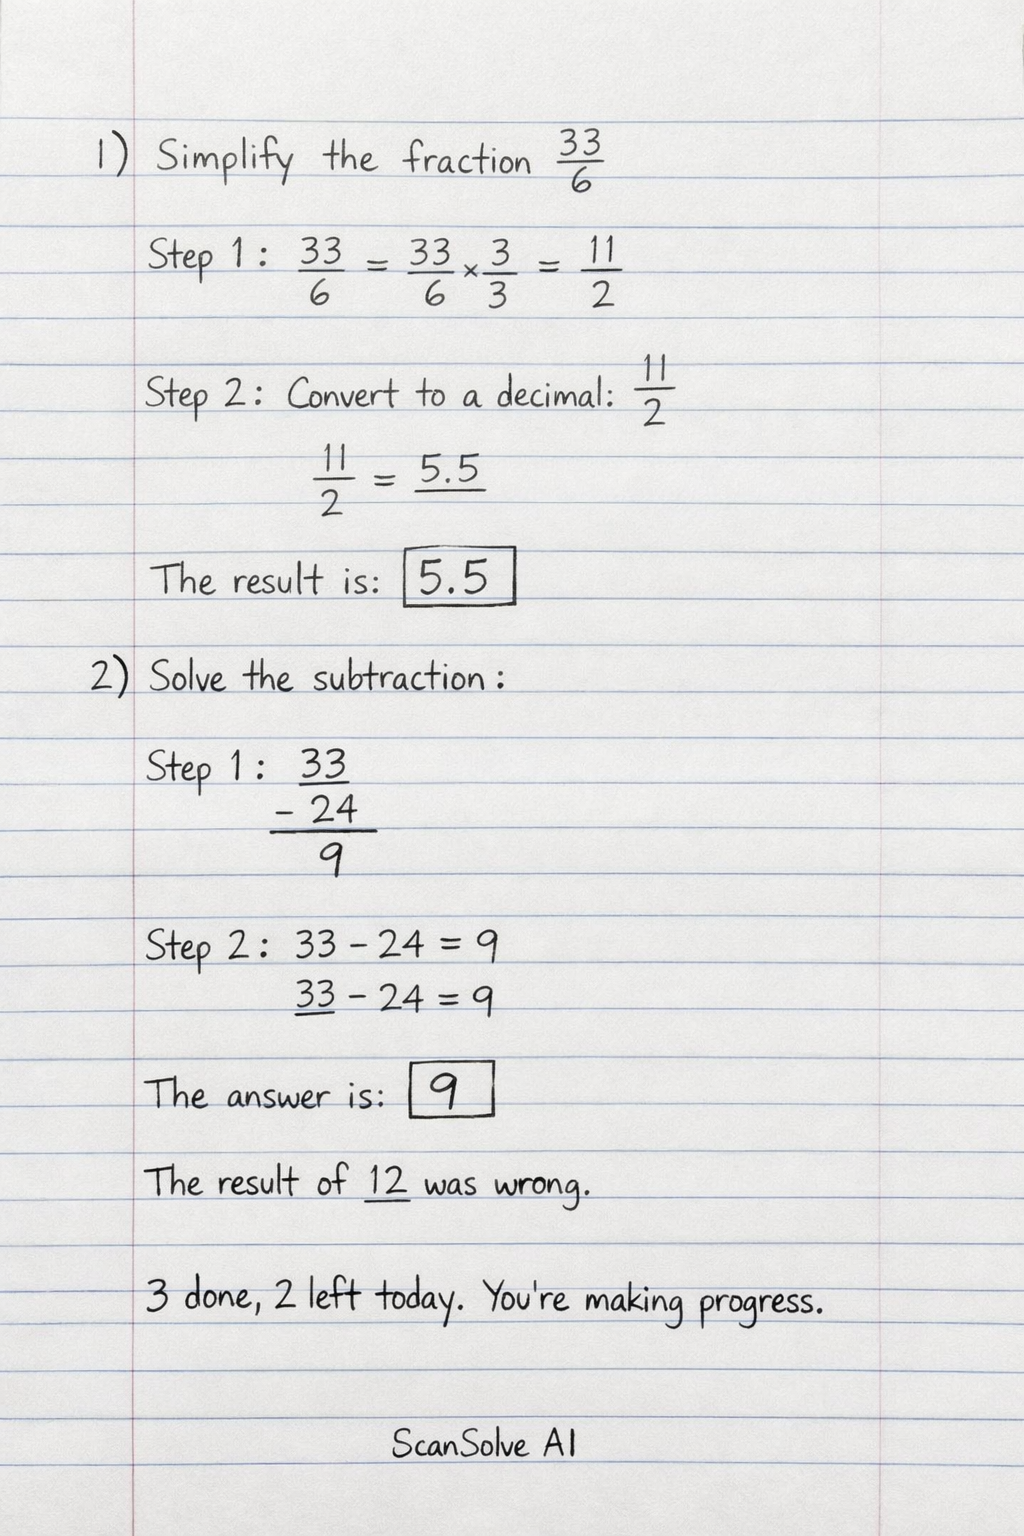 1) Simplify the fraction 33/6
Step 1: 33/6 = 33/6 × 3/3 = 11/2
Step 2: Convert to a decimal: 11/2
11/2 = 5.5
The result is: 5.5
2) Solve the subtraction:
Step 1: 33
- 24
9
Step 2: 33 - 24 = 9
33 - 24 = 9
The answer is: 9
The result of 12 was wrong.
3 done, 2 left today. You're making progress.
ScanSolve AI